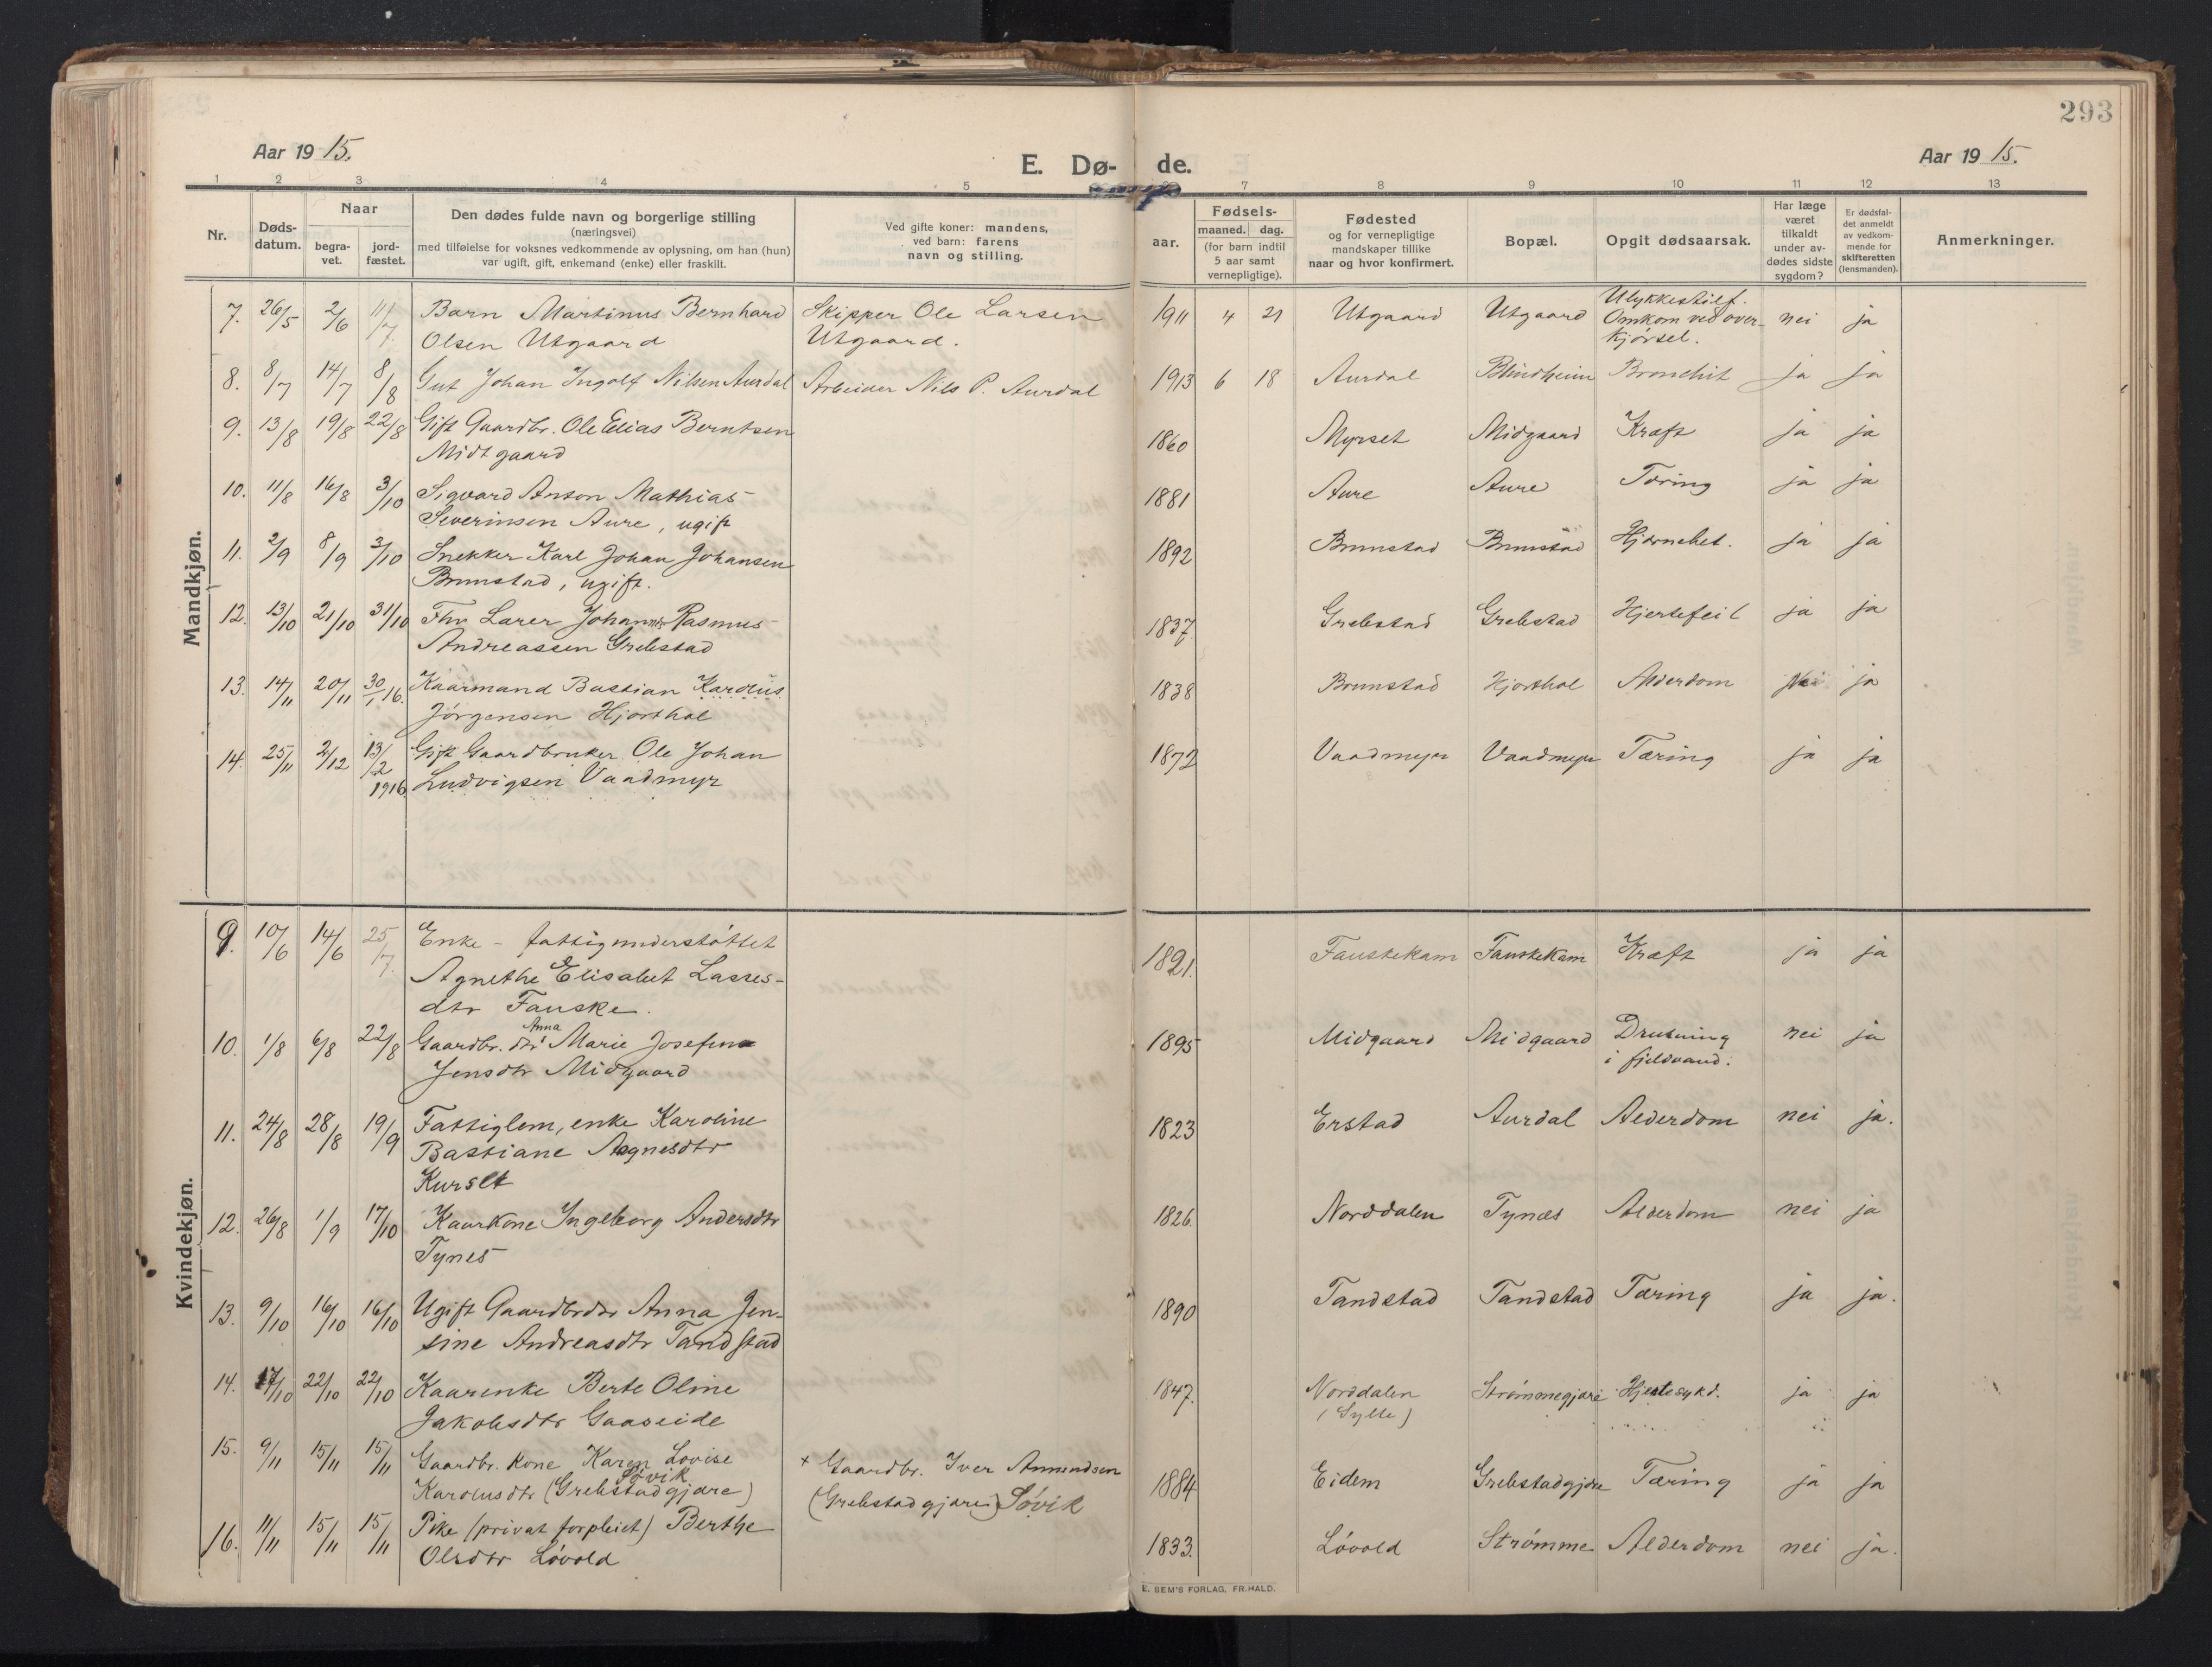 293
Aar 1915.
E. Dø- de.
Aar 1915.
1 2 3 4 5 7 8 9 10 11 12 13
Nr.
Døds-
datum.
Naar
begra-
vet.
jord-
fæstet.
Den dødes fulde navn og borgerlige stilling
(næringsvei)
med tilføielse for voksnes vedkommende av oplysning, om han (hun)
var ugift, gift, enkemand (enke) eller fraskilt.
Ved gifte koner: mandens,
ved barn: farens
navn og stilling.
aar.
Fødsels-
maaned. dag.
(for barn indtil
5 aar samt
vernepligtige).
Fødested
og for vernepligtige
mandskaper tillike
naar og hvor konfirmert.
Bopæl.
Opgit dødsaarsak.
Har læge
været
tilkaldt
under av-
dødes sidste
sygdom?
Er dødsfal-
det anmeldt
av vedkom-
mende for
skifteretten
(lensmanden).
Anmerkninger.
Mandkjøn.
7. 26/5 2/6 11/7 Barn Martinus Bernhard Skipper Ole Larsen 1911 4 21 Utgaard Utgaard Ulykkestilf. nei ja
Olsen Utgaard Utgaard. Omkom ved over-
kjørsel.
8. 8/7 14/7 8/8 Gut Johan Ingolf Nilsen Aurdal Arbeider Nils P. Aurdal 1913 6 18 Aurdal Blindheim Bronchit ja ja
9. 13/8 19/8 22/8 Gift Gaardbr. Ole Elias Berntsen 1860 Myrset Midgaard Kræft ja ja
Midtgaard
10. 11/8 16/8 3/10 Sigvard Anton Mathias 1881 Aure Aure Tæring ja ja
Severinsen Aure, ugift
11. 2/9 8/9 3/10 Snekker Karl Johan Johansen 1892 Brunstad Brunstad Hjernebet. ja ja
Brunstad, ugift.
12. 13/10 21/10 31/10 Fhv Lærer Johannes Rasmus 1837. Grebstad Grebstad Hjertefeil ja ja
Andreassen Grebstad
13. 14/11 20/11 30/1 16. Kaarmand Bastian Karolus 1838 Brunstad Hjorthol Alderdom Nei ja
Jørgensen Hjorthol
14. 25/11 2/12 13/2 Gift Gaardbruker Ole Johan 1872 Vaadmyr Vaadmyr Tæring ja ja
1916. Ludvigsen Vaadmyr
Kvindekjøn.
9. 10/6 14/6 25/7. Enke - fattigunderstøttet 1821. Faustekam Faustekam Kræft ja ja
Agnethe Elisabet Lasses-
dtr Fauske.
10. 1/8 6/8 22/8 Gaardbr. dtr Anna Marie Josefine 1895 Midgaard Midgaard Drukning nei ja
Jensdtr Midgaard i fjeldvand.
11. 24/8 28/8 19/9 Fattiglem, enke Karoline 1823 Erstad Aurdal Alderdom nei ja.
Bastiane Agnesdtr
Kurset
12. 26/8 1/9 17/10 Kaarkone Ingeborg Andersdtr 1826. Norddalen Tynes Alderdom nei ja
Tynes
13. 9/10 16/10 16/10 Ugift Gaardbrdtr Anna Jen- 1890 Tandstad Tandstad Tæring ja ja.
sine Andreasdtr Tandstad
14. 17/10 22/10 22/10 Kaarenke Berte Oline 1847. Norddalen Strømmegjære Hjertesykd. ja ja
Jakobsdtr Gaaseide (Sylte)
15. 9/11 15/11 15/11 Gaardbr. kone Karen Lovise + Gaardbr. Iver Amundsen 1884 Eidem Grebstadgjære Tæring ja ja
Karolusdtr (Grebstadgjære) Søvik (Grebstadgjære) Søvik
16. 11/11 15/11 15/11 Pike (privat forpleiet) Berthe 1833. Løvold Strømme Alderdom nei ja.
Olsdtr Løvold
E. SEM'S FORLAG, FR.HALD.